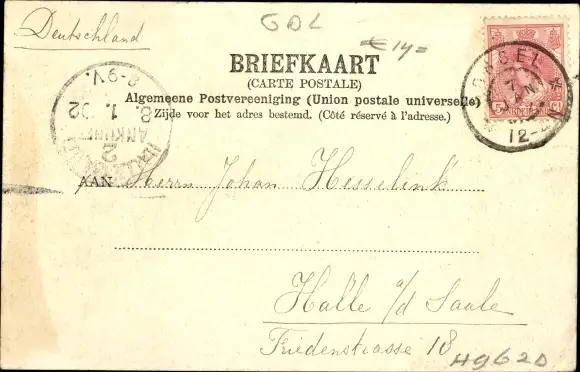 GDL
Deutschland
€ 14=
BRIEFKAART
(CARTE POSTALE)
Algemeene Postvereeniging (Union postale universelle)
Zijde voor het adres bestemd. (Côté réservé à l'adresse.)
8-9V.
8. 1. 02
ANKUNFT
2
7 JAN
12-
5
AAN Herrn Johan Hesselink
Halle a/d Saale
Friedenstrasse 18
H9620